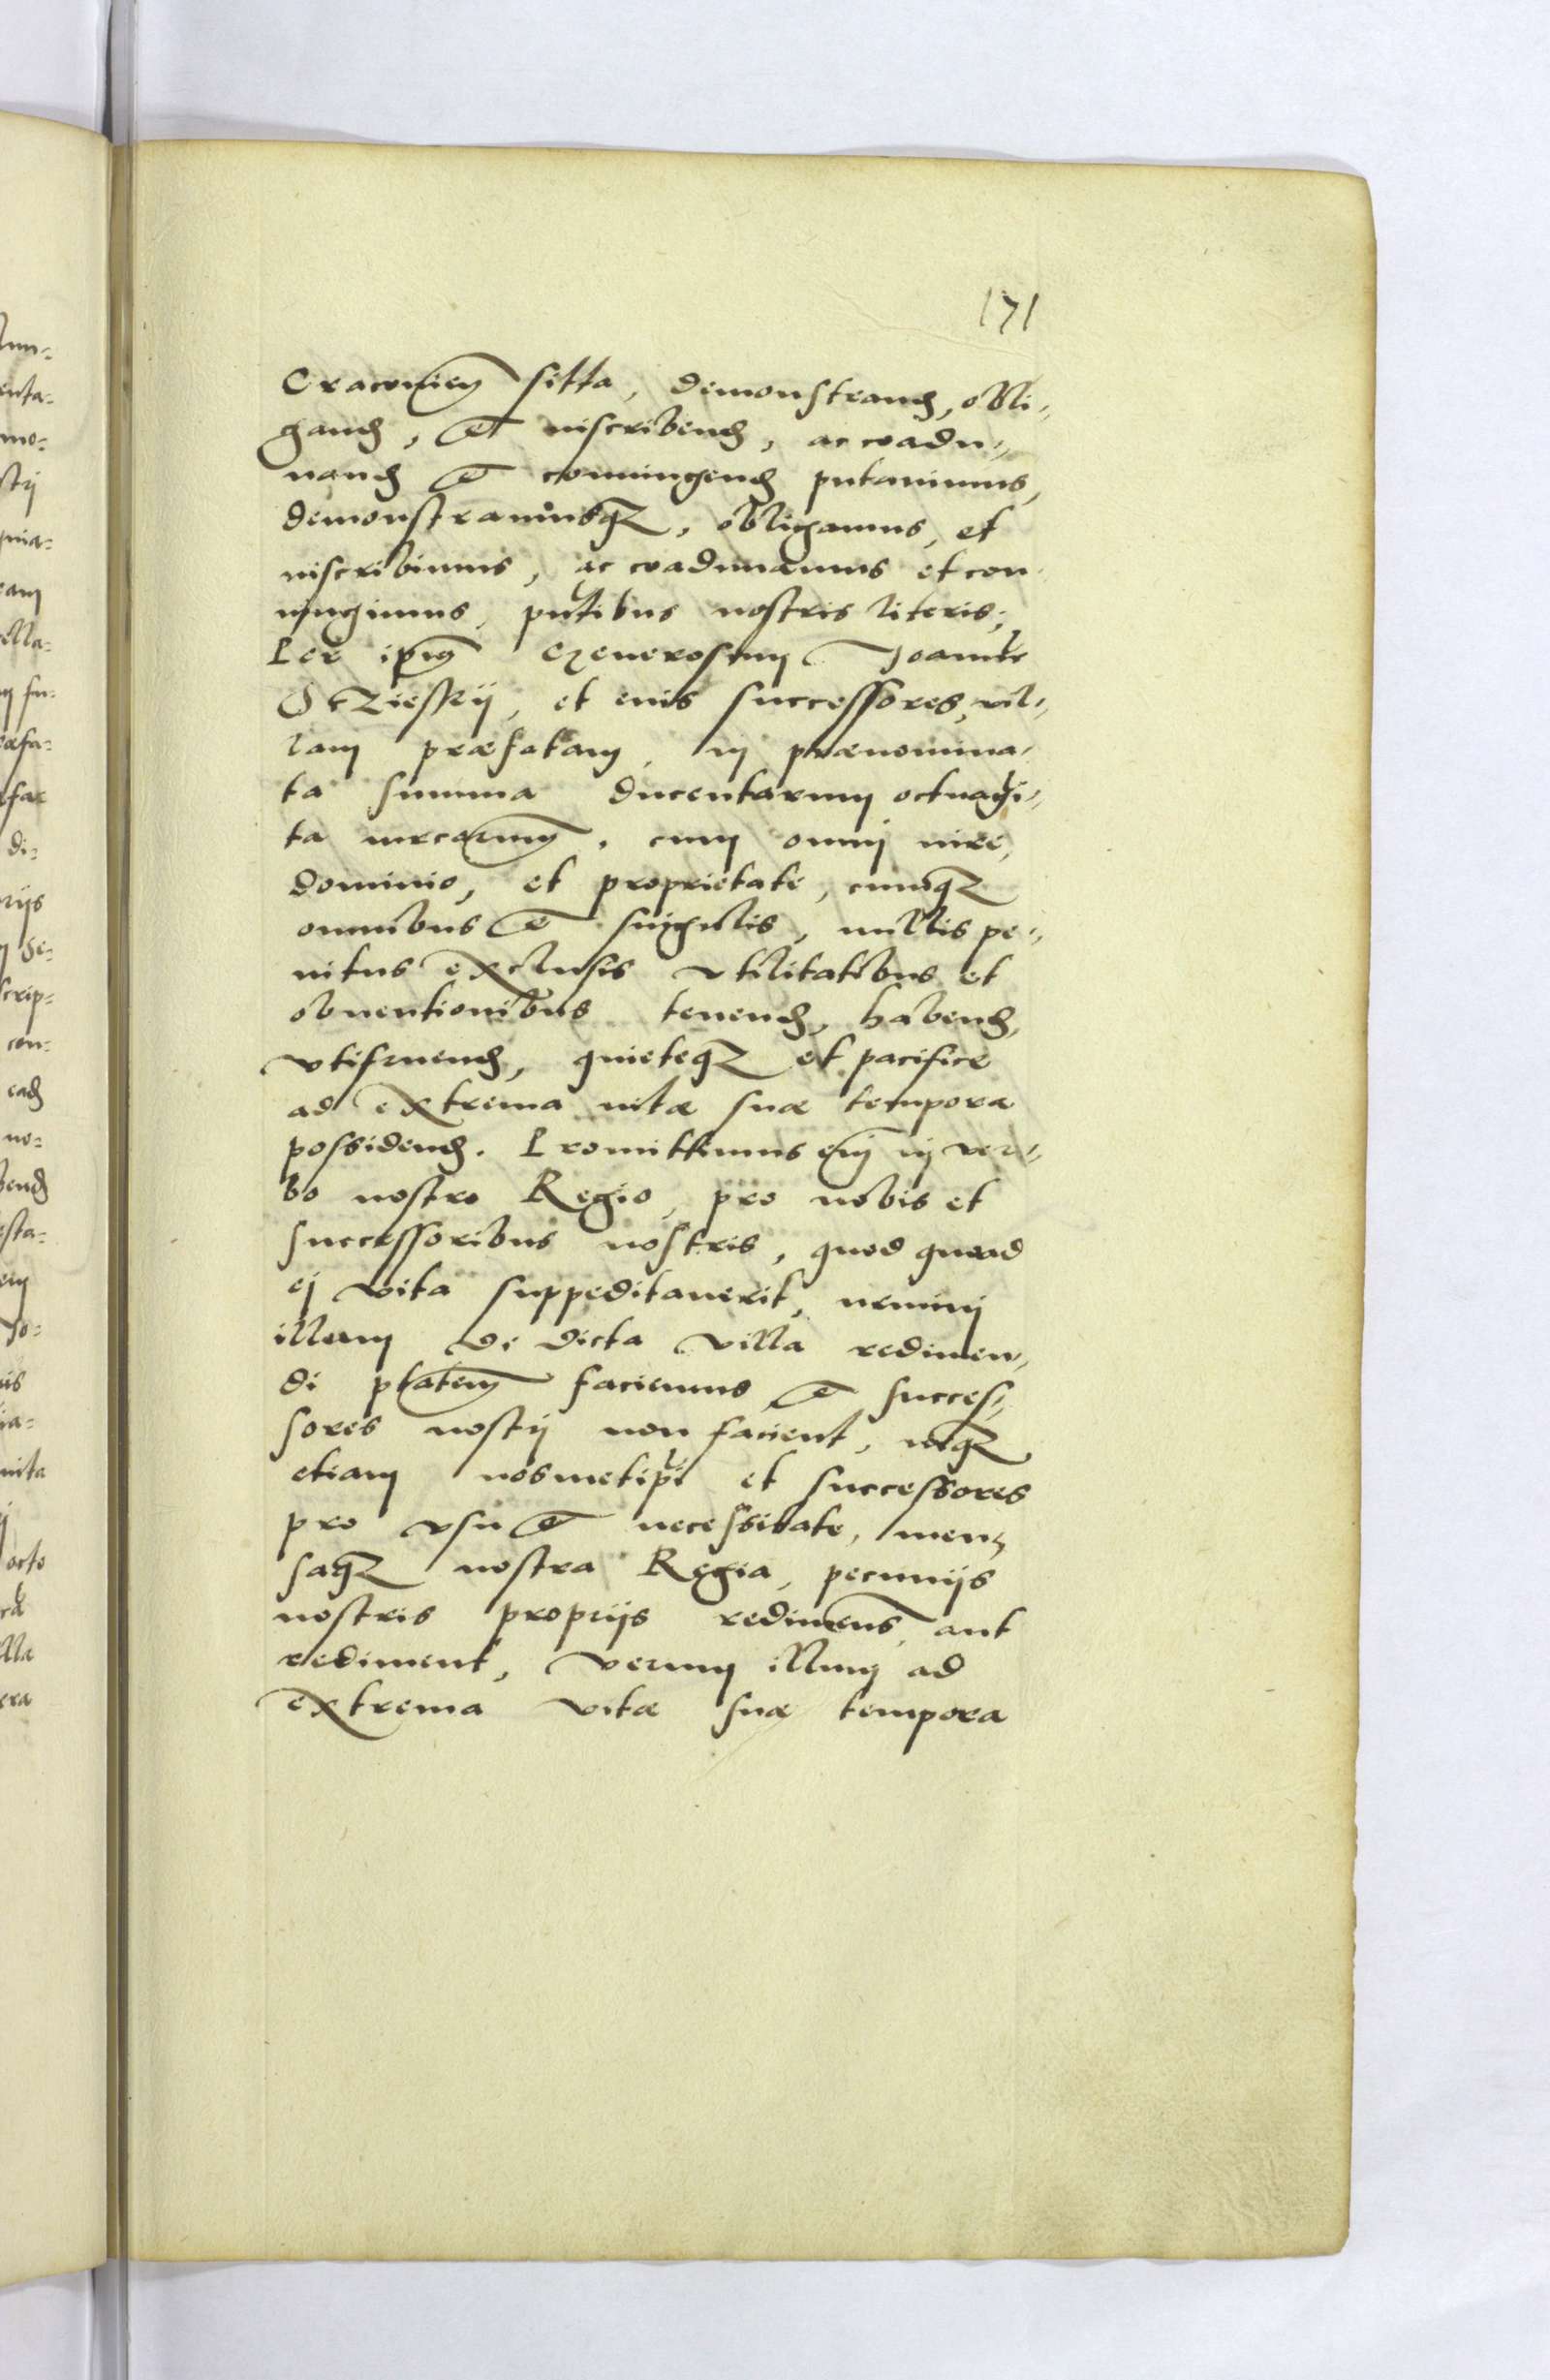 171
Cracovien sitta, demonstrand, obli-
gand, et inscribend, ac coadu-
nand et coniungend putavimus,
demonstramusq, obligamus, et
inscribimus, ac coadunamus et con
iungimus, pntibus nostris literis;
Per ipm Generosum Joannem
Ocziesky, et eius successores, vil-
lam præfatam, in prænomina-
ta summa ducentarum octuagi-
ta mrcarum, cum omni iure,
dominio, et proprietate, cumq
omnibus et singulis, nullis pe-
nitus exclusis vtilitatibus et
obventionibus tenend, habend,
vtifruend, quieteq et pacifice
ad extrema vitæ suæ tempora
possidend. Promittimus eni in ver-
bo nostro Regio, pro nobis et
successoribus nostris, quod quoad
ei vita suppeditauerit, nemini
illam de dicta villa redimen-
di ptatem faciemus et succes-
sores nostri non facient, neq
etiam nosmetipsi et successores
pro vsu et necessitate, men-
saq nostra Regia, pecunijs
nostris proprijs redimems aut
rediment, verum illum ad
extrema vitæ suæ tempora